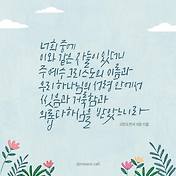 너희 중에
이와 같은 자들이 있더니
주 예수 그리스도의 이름과
우리 하나님의 성령 안에서
씻음과 거룩함과
고린도전서 6장 11절
의롭다 하심을 받았느니라